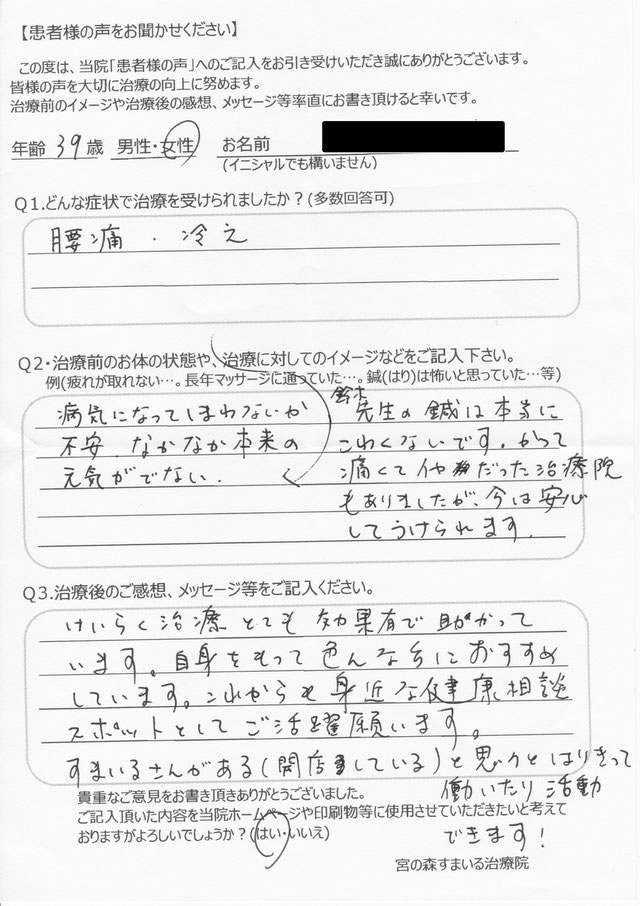 【患者様の声をお聞かせください】
この度は、当院「患者様の声」へのご記入をお引き受けいただき誠にありがとうございます。
皆様の声を大切に治療の向上に努めます。
治療前のイメージや治療後の感想、メッセージ等率直にお書き頂けると幸いです。
年齢 39 歳 男性・女性 お名前
(イニシャルでも構いません)
Q1.どんな症状で治療を受けられましたか？(多数回答可)
腰痛 . 冷え
Q2・治療前のお体の状態や、治療に対してのイメージなどをご記入下さい。
例(疲れが取れない…。長年マッサージに通っていた…。鍼(はり)は怖いと思っていた…等)
病気になってしまわないか
不安. なかなか本来の
元気がでない.
鈴木
先生の鍼は本当に
こわくないです. かつて
痛くてイヤだった治療院
もありましたが、今は安心
してうけられます.
Q3.治療後のご感想、メッセージ等をご記入ください。
けいらく治療とても効果有で助かって
います。自身をもって色んな方におすすめ
しています。これからも身近な健康相談
スポットとしてご活躍願います。
すまいるさんがある(開店している)と思うとはりきって
働いたり活動
できます!
貴重なご意見をお書き頂きありがとうございました。
ご記入頂いた内容を当院ホームページや印刷物等に使用させていただきたいと考えて
おりますがよろしいでしょうか？(はい・いいえ)
宮の森すまいる治療院